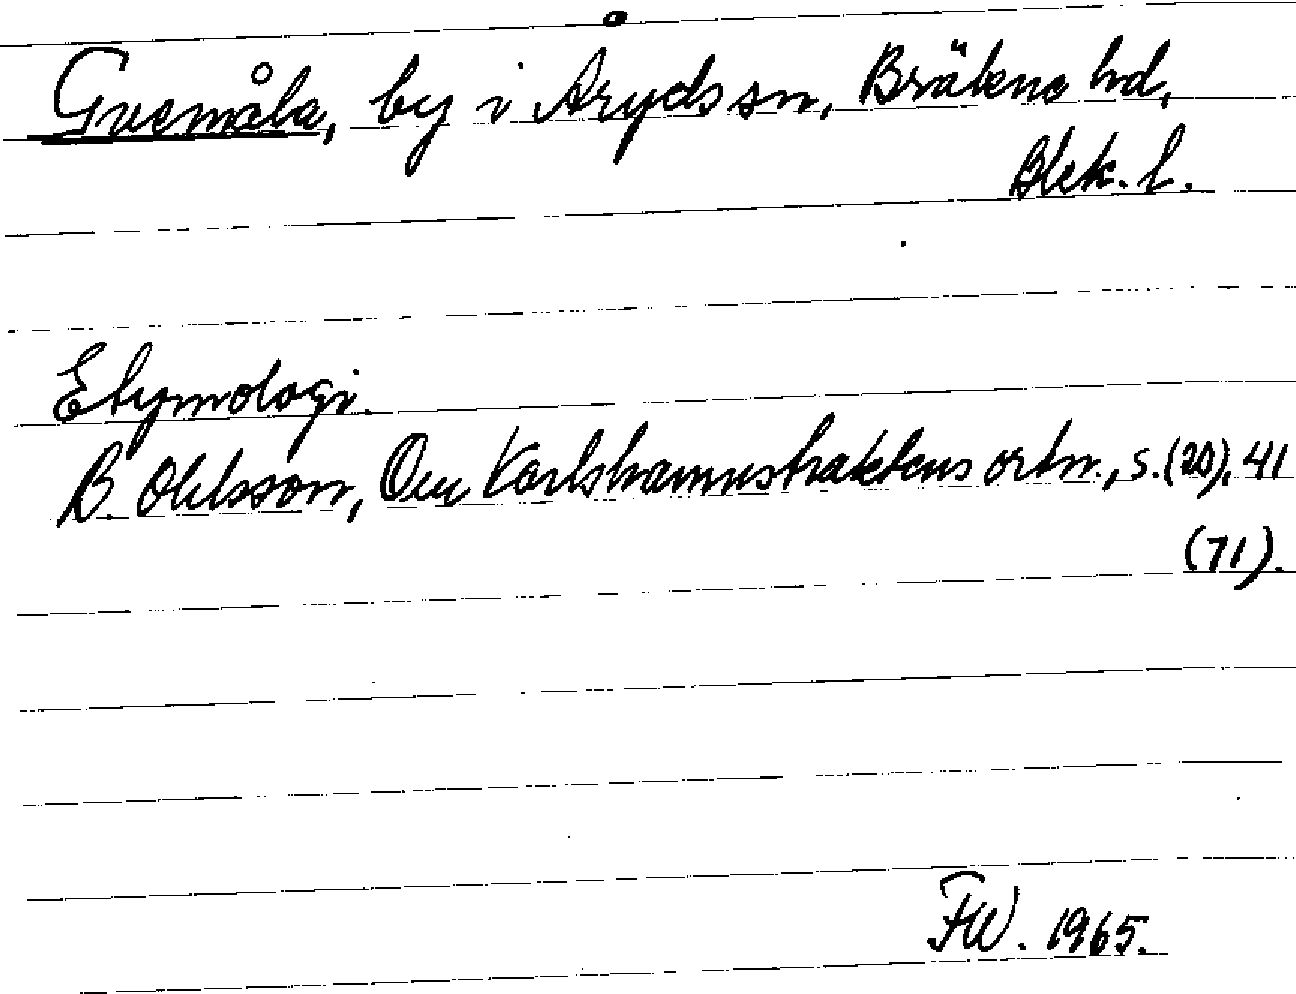 Gvemåla, by i Åryds sn, Bräkne hd,
Blek. l.
Etymologi.
B. Ohlsson, Om Karlshamnstraktens ortn., s. (20), 41
(71).
FW. 1965.